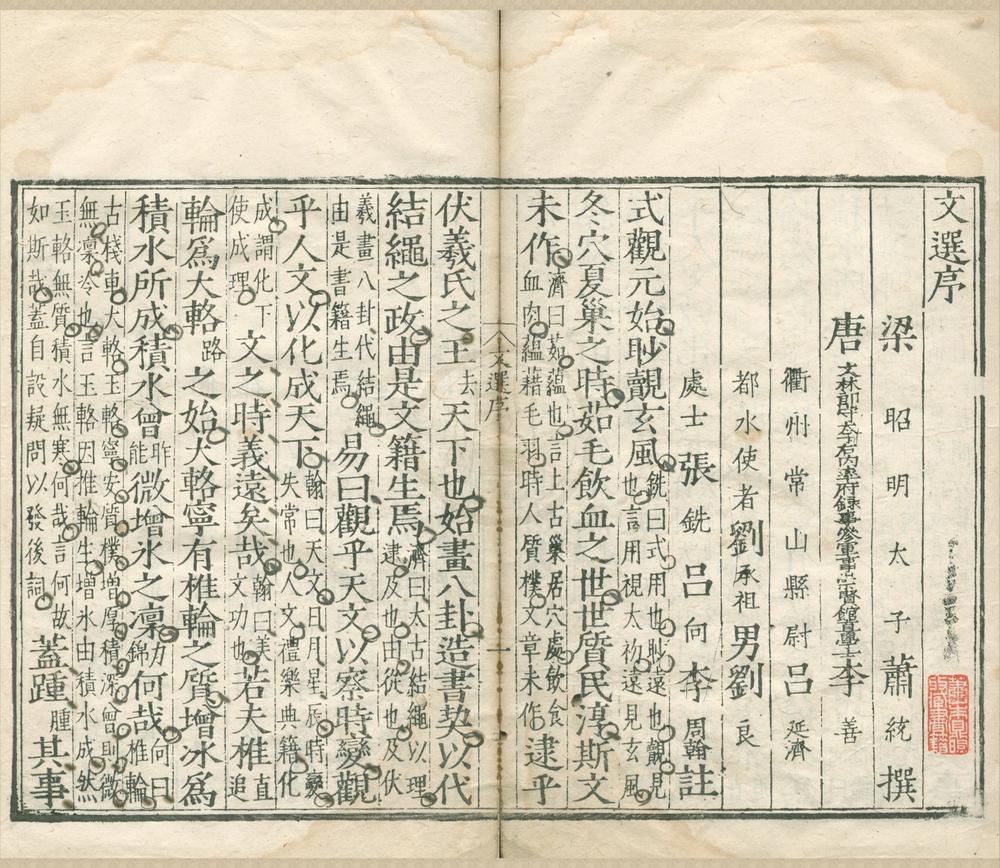 文選序
梁昭明太子蕭統撰
唐文林郎守太子右內率府錄事參軍事崇賢館直學士李善
衢州常山縣尉呂延濟
都水使者劉承祖男劉良
處士張銑呂向李周翰註
式觀元始眇覿玄風銑曰式用也眇遠也覿見也言用視太初遠見玄風
冬穴夏巢之時茹毛飲血之世世質民淳斯文
未作濟曰茹蘊也言上古巢居穴處飲食血肉蘊藉毛羽時人質樸文章未作逮乎
文選序
一
伏羲氏之王去天下也始畫八卦造書契以代
結繩之政由是文籍生焉濟曰太古結繩以理逮及也由從也及伏
羲畫八卦代結繩由是書籍生焉易曰觀乎天文以察時變觀
乎人文以化成天下翰曰天文日月星辰時變失常也人文禮樂典籍化
成謂化下使成理文之時義遠矣哉翰曰美文功也若夫椎直追
輪爲大輅路之始大輅寧有椎輪之質增冰爲
積水所成積水曾昨能微增冰之凜力錦何哉何曰椎輪
古棧車大輅玉輅寧安質樸增厚積深曾則微無凜冷也言玉輅因推輪生增氷由積水成然
玉輅無質積水無寒何哉言何故如斯哉蓋自設疑問以發後詞蓋踵腫其事